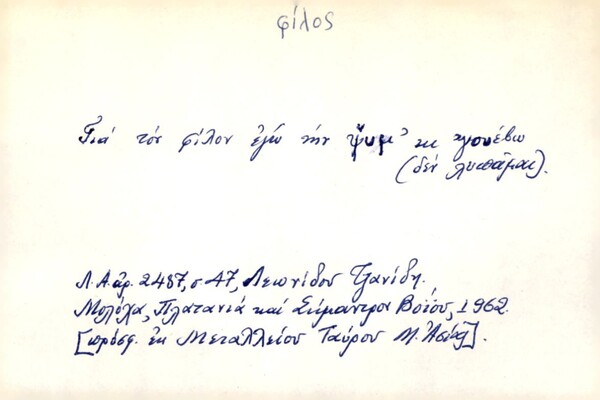 φίλος
Γιά τόν φίλον ἐγώ τήν ψυμ' κι
(δέν λυπᾶμαι).
Λ.Α. ἀρ. 2487, σ. 47, Λεωνίδου Τζανίδη.
Μολόχα, Πλατανιά καί Σήμαντρον Βοΐου, 1962.
[πρόσφ. ἐκ Μεταλλείου Ταύρου Μ. Ἀσίας].